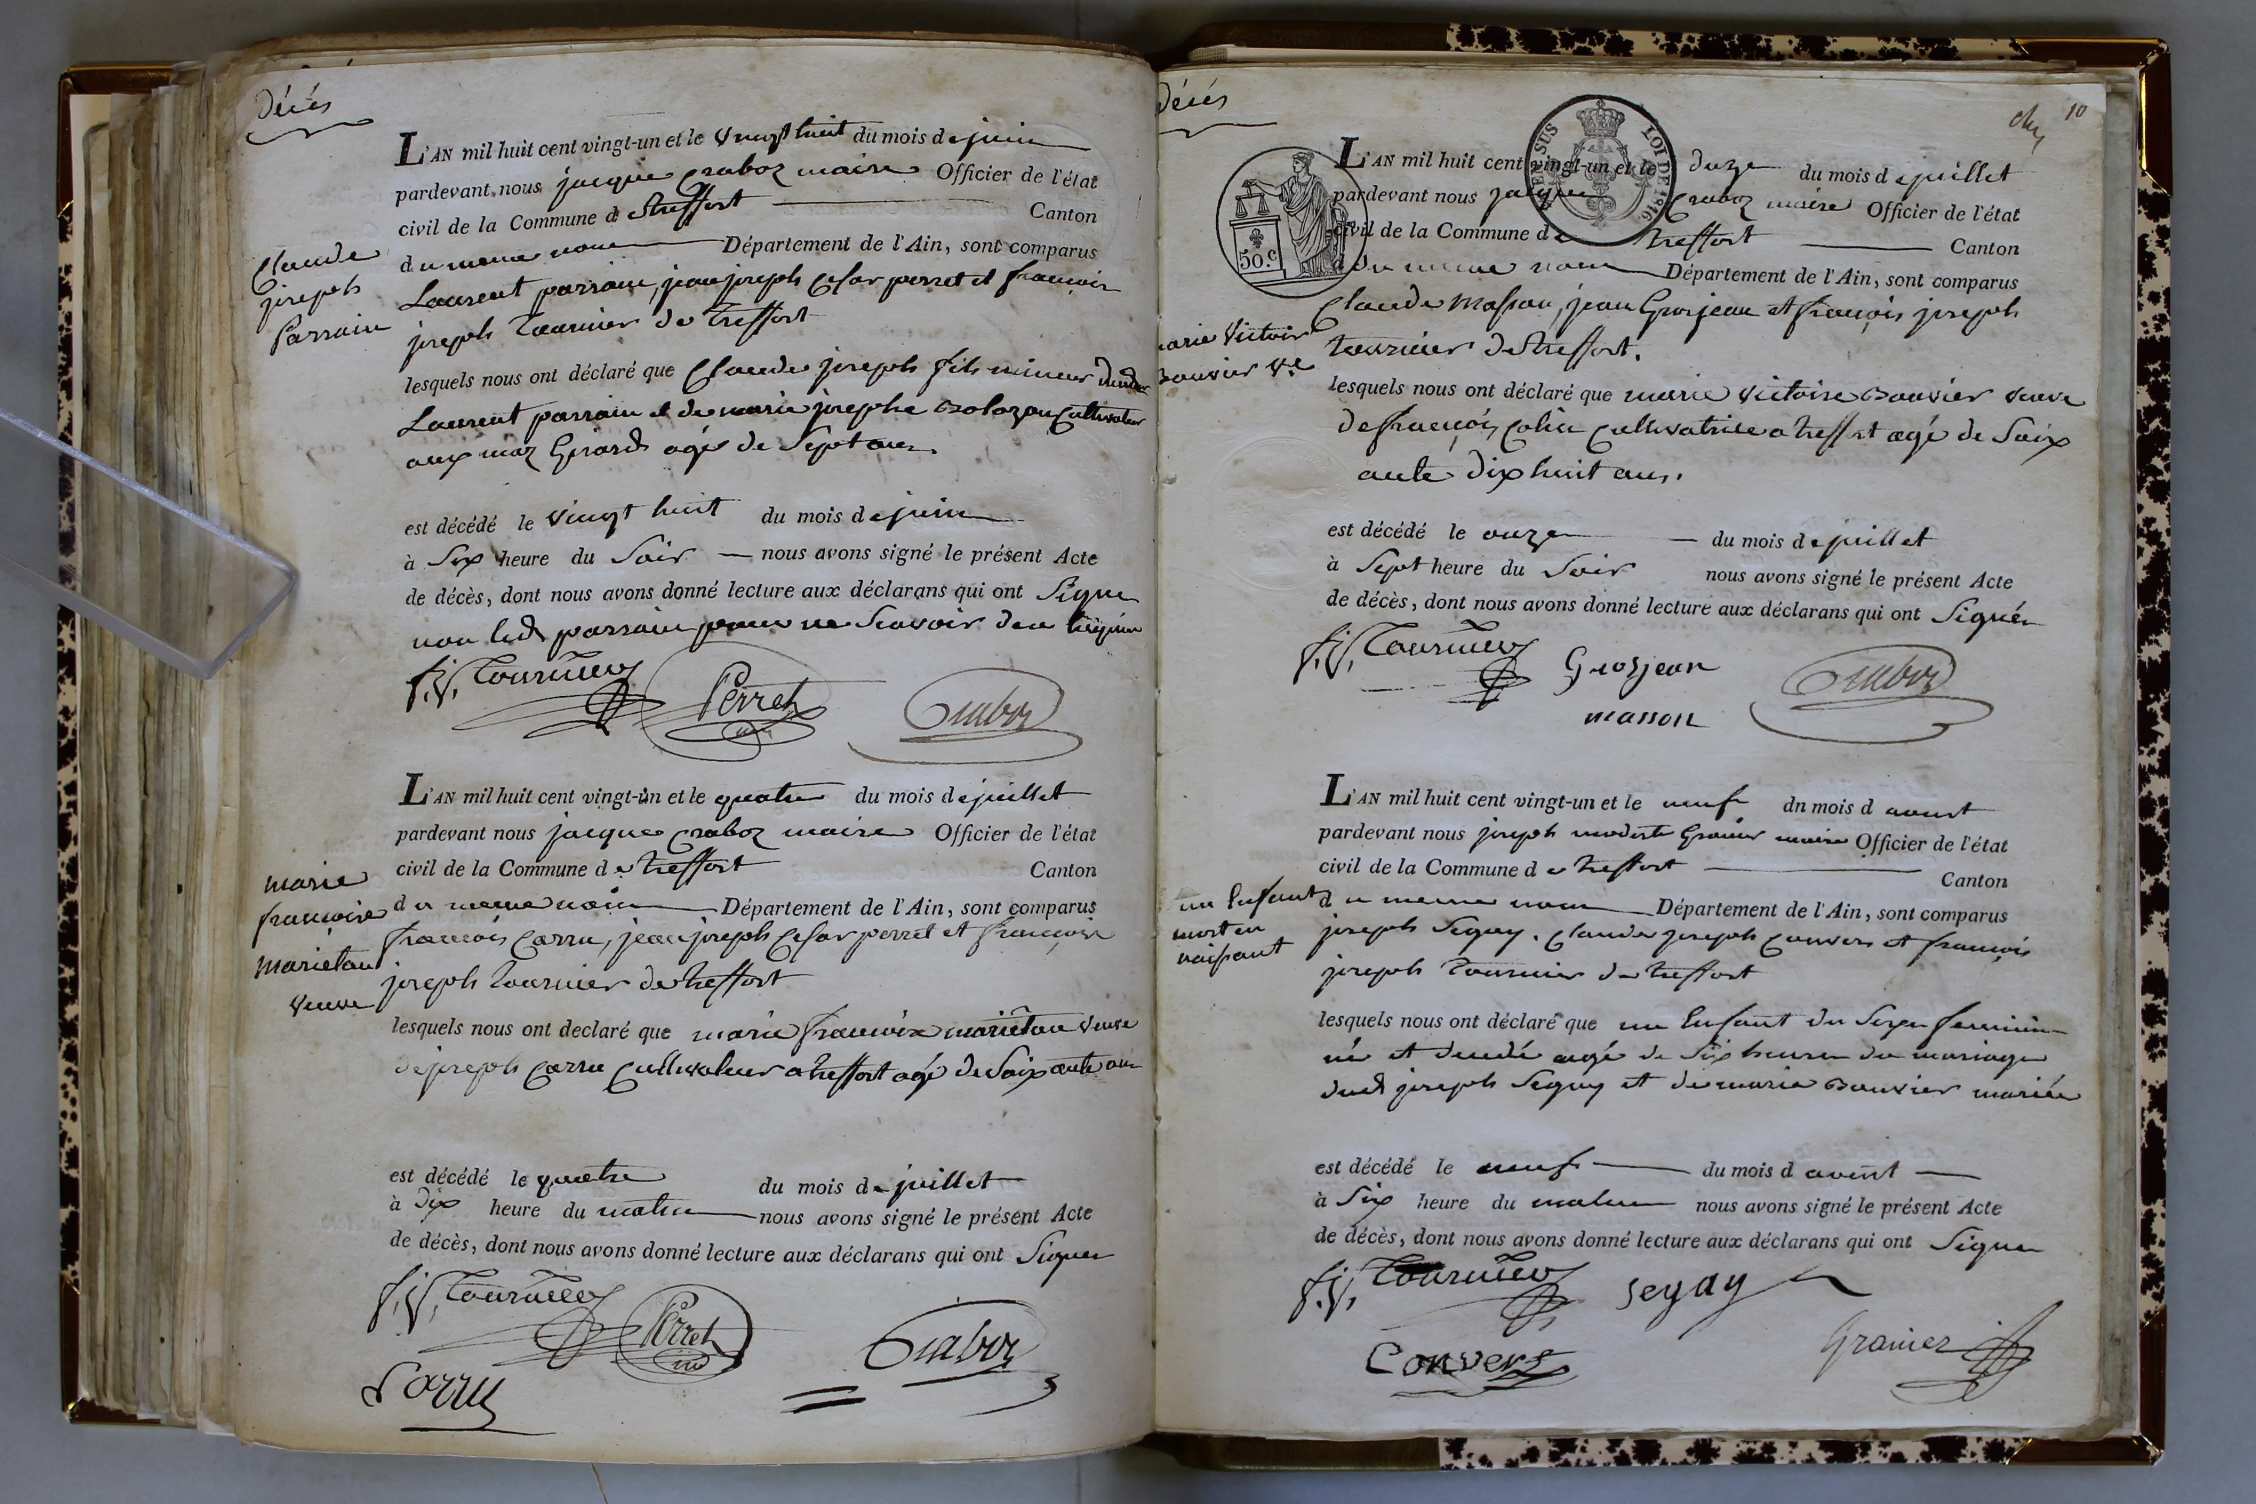 Décés
L'AN mil huit cent vingt-un et le vingt huit du mois de juin
pardevant nous jacque Craboz maire Officier de l'état
civil de la Commune de treffort Canton
du meme nom Département de l'Ain, sont comparus
Laurent parrain, jean joseph Cesar perret et françois
joseph tournier de treffort
Claude
joseph
Parrain
lesquels nous ont déclaré que Claude joseph fils mineur dudit
Laurent parrain et de marie josephe Bolozon Cultivateur
aux maz Girard agé de Sept ans.
est décédé le vingt huit du mois de juin
à Six heure du Soir nous avons signé le présent Acte
de décès, dont nous avons donné lecture aux déclarans qui ont Signe
non led parrain pour ne Scavoir de ce
f. j. Tournier
Perret
Craboz
L'AN mil huit cent vingt-un et le quatre du mois de juillet
pardevant nous jacque Craboz maire Officier de l'état
civil de la Commune de treffort Canton
du meme nom Département de l'Ain, sont comparus
françois Carru, jean joseph Cesar perret et françois
joseph tournier de treffort
marie
françoise
marietan
veuve
lesquels nous ont declaré que marie françoise marietan veuve
de joseph Carru Cultivateur a treffort agé de Soixante ans
est décédé le quatre du mois de juillet
à Dix heure du matin nous avons signé le présent Acte
de décès, dont nous avons donné lecture aux déclarans qui ont Signer
f. j. Tournier
Perret
Craboz
Carru
Décés
10
SUS
LOI DE 1816
50.c
L'AN mil huit cent vingt-un et le duze du mois de juillet
pardevant nous jacque Craboz maire Officier de l'état
civil de la Commune de treffort Canton
du meme nom Département de l'Ain, sont comparus
Claude Masson, jean Grosjean et françois joseph
tournier de treffort.
marie Victoire
Bouvier Ve
lesquels nous ont déclaré que marie Victoire Bouvier veuve
de françois Colin Cultivatrice a treffort agé de Soix
ante dix huit ans.
est décédé le onze du mois de juillet
à Sept heure du Soir nous avons signé le présent Acte
de décés, dont nous avons donné lecture aux déclarans qui ont Signér
f. j. Tournier
Grosjean
masson
Craboz
L'AN mil huit cent vingt-un et le neuf dn mois d aoust
pardevant nous joseph modeste Granier maire Officier de l'état
civil de la Commune de treffort Canton
du meme nom Département de l'Ain, sont comparus
joseph Segay. Claude joseph Convers et françois
joseph tournier de treffort
un Enfant
mort en
naissant
lesquels nous ont déclaré que un Enfant du Sexe feminin
né et decedé agé de Six heures du mariage
dud joseph Segay et de marie Bouvier mariée
est décédé le neuf du mois d aoust
à Six heure du matin nous avons signé le présent Acte
de décès, dont nous avons donné lecture aux déclarans qui ont Signer
f. j. Tournier
segay
Convers
Granier